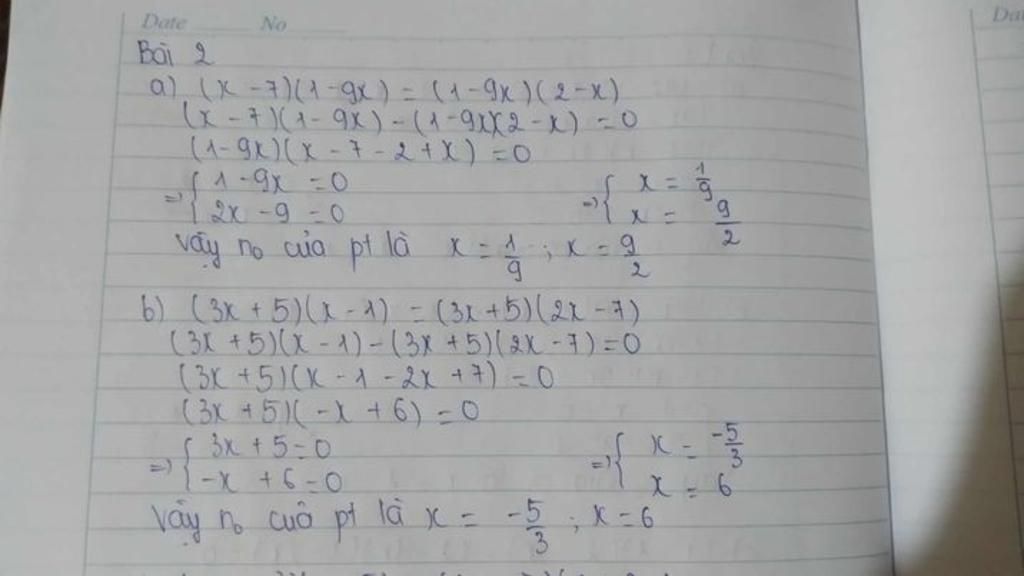 Date No
Bài 2
a) (x - 7)(1 - 9x) = (1 - 9x)(2 - x)
(x - 7)(1 - 9x) - (1 - 9x)(2 - x) = 0
(1 - 9x)(x - 7 - 2 + x) = 0
=> { 1 - 9x = 0 => { x = 1/9
2x - 9 = 0 x = 9/2
Vậy n₀ của pt là x = 1/9 ; x = 9/2
b) (3x + 5)(x - 1) = (3x + 5)(2x - 7)
(3x + 5)(x - 1) - (3x + 5)(2x - 7) = 0
(3x + 5)(x - 1 - 2x + 7) = 0
(3x + 5)(-x + 6) = 0
=> { 3x + 5 = 0 => { x = -5/3
-x + 6 = 0 x = 6
Vậy n₀ của pt là x = -5/3 ; x = 6